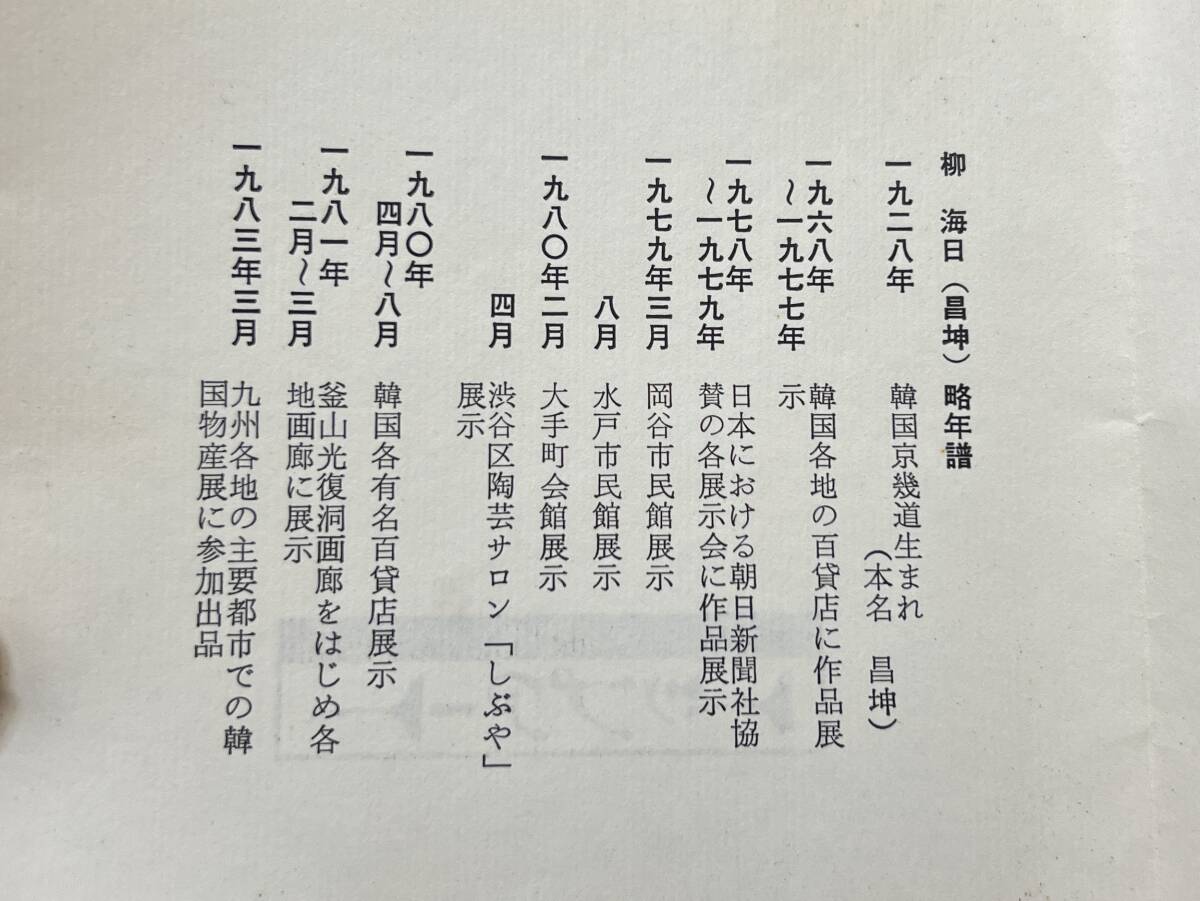 柳 海日（昌坤）略年譜
一九二八年 韓国京幾道生まれ
（本名 昌坤）
一九六八年 韓国各地の百貨店に作品展
〜一九七七年 示
一九七八年 日本における朝日新聞社協
〜一九七九年 賛の各展示会に作品展示
一九七九年三月 岡谷市民館展示
八月 水戸市民館展示
一九八〇年二月 大手町会館展示
四月 渋谷区陶芸サロン「しぶや」
展示
一九八〇年
四月〜八月 韓国各有名百貨店展示
一九八一年 釜山光復洞画廊をはじめ各
二月〜三月 地画廊に展示
一九八三年三月 九州各地の主要都市での韓
国物産展に参加出品